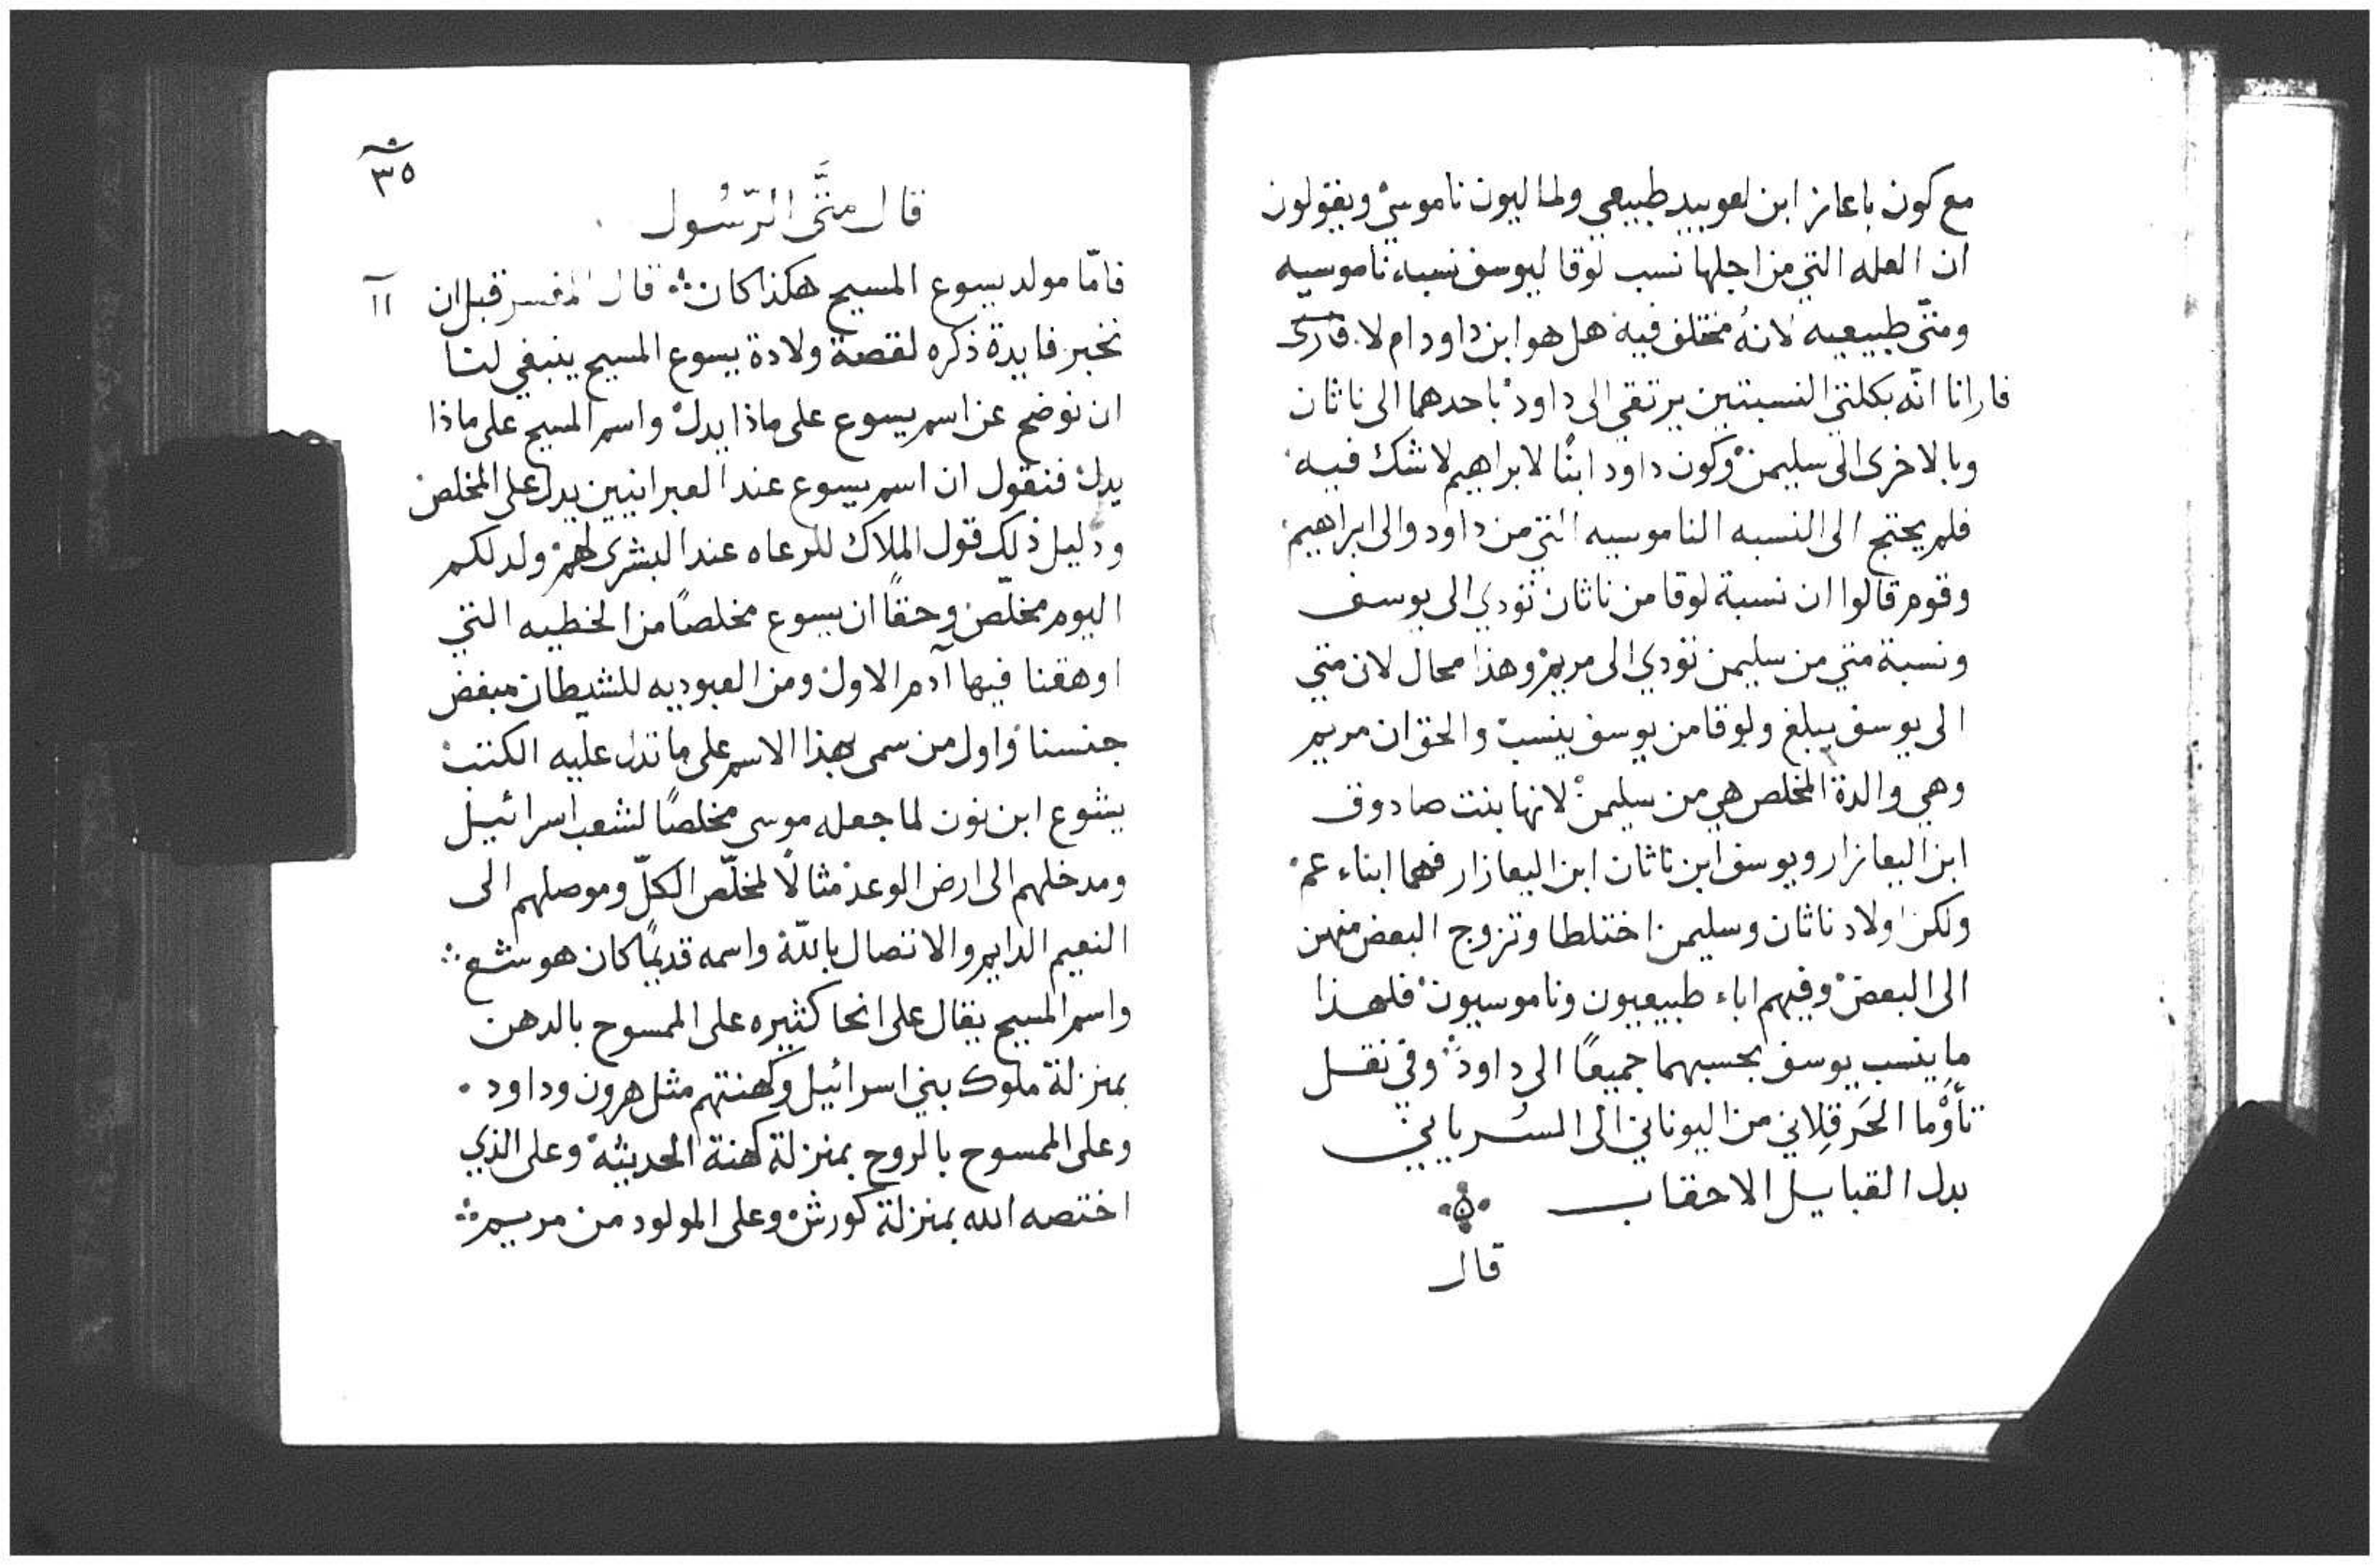 مع كون باعاز ابن لعوبيد طبيعي ولماليون ناموسي ويقولون
ان العله التي من اجلها نسب لوقا ليوسف نسبه ناموسيه
ومتى طبيعيه لانهُ مختلف فيه هل هو ابن داود ام لا
فارانا انّه بكلتي النسبتين يرتقي الى داود باحدهما الى ناثان
وبالاخرى الى سليمن وكون داود ابنًا لابراهيم لا شك فيه
فلم يحتج الى النسبه الناموسيه التي من داود والى ابراهيم
وقوم قالوا ان نسبة لوقا من ناثان تودي الى يوسف
ونسبة متي من سليمن تودي الى مريم وهذا محال لان متي
الى يوسف يبلغ ولوقا من يوسف ينسب والحق ان مريم
وهي والدة المخلص هي من سليمن لانها بنت صادوق
ابن اليعازار ويوسف ابن ناثان ابن اليعازار فهما ابناء عم
ولكن اولاد ناثان وسليمن اختلطا وتزوج البعض منهن
الى البعض وفيهم اباء طبيعيون وناموسيون فلهذا
ما ينسب يوسف بحسبهما جميعًا الى داود وفي نقل
تأوْما الحَرقِلاني من اليوناني الى السُرياني
بدل القبايل الاحقاب
قال
٣٥
قال متَّى الرّسُول
فامّا مولد يسوع المسيح هكذا كان قال المفسر قبل ان
نخبر فايدة ذكره لقصة ولادة يسوع المسيح ينبغي لنا
ان نوضح عن اسم يسوع على ماذا يدل واسم المسيح على ماذا
يدل فنقول ان اسم يسوع عند العبرانيين يدل على المخلص
ودليل ذلك قول الملاك للرعاه عند البشرى لهم ولد لكم
اليوم مخلّص وحقًا ان يسوع مخلصًا من الخطيه التي
اوهقنا فيها آدم الاول ومن العبوديه للشيطان مبغض
جنسنا واول من سمى بهذا الاسم على ما تدل عليه الكتب
يشوع ابن نون لما جعله موسى مخلصًا لشعب اسرائيل
ومدخلهم الى ارض الوعد مثالًا لمخلّص الكلّ وموصلهم الى
النعيم الدايم والاتصال باللّه واسمه قديمًا كان هوشع
واسم المسيح يقال على انحا كثيره على الممسوح بالدهن
بمنزلة ملوك بني اسرائيل وكهنتهم مثل هرون وداود
وعلى الممسوح بالروح بمنزلة كهنة الحديثه وعلى الذي
اختصه الله بمنزلة كورش وعلى المولود من مريم